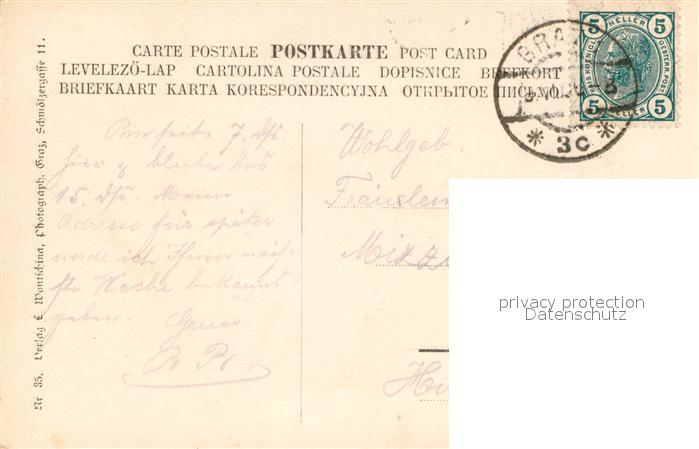 CARTE POSTALE POSTKARTE POST CARD
LEVELEZŐ-LAP CARTOLINA POSTALE DOPISNICE BREFKORT
BRIEFKAART KARTA KORESPONDENCYJNA ОТКРЫТОЕ ПИСЬМО
5 HELLER 5
5 5
GRAZ
* 3c *
Nr 35. Verlag L. Wontichina, Photograph. Graz, Schmölzergasse 11.
Bin seit 7. dfs
hier & bleibe bis
15. dfs. Meine
Adresse für später
werde ich Ihnen näch-
ste Woche bekannt
geben.
Gruss
Wohlgeb.
Fräulein
Mizz
privacy protection
Datenschutz